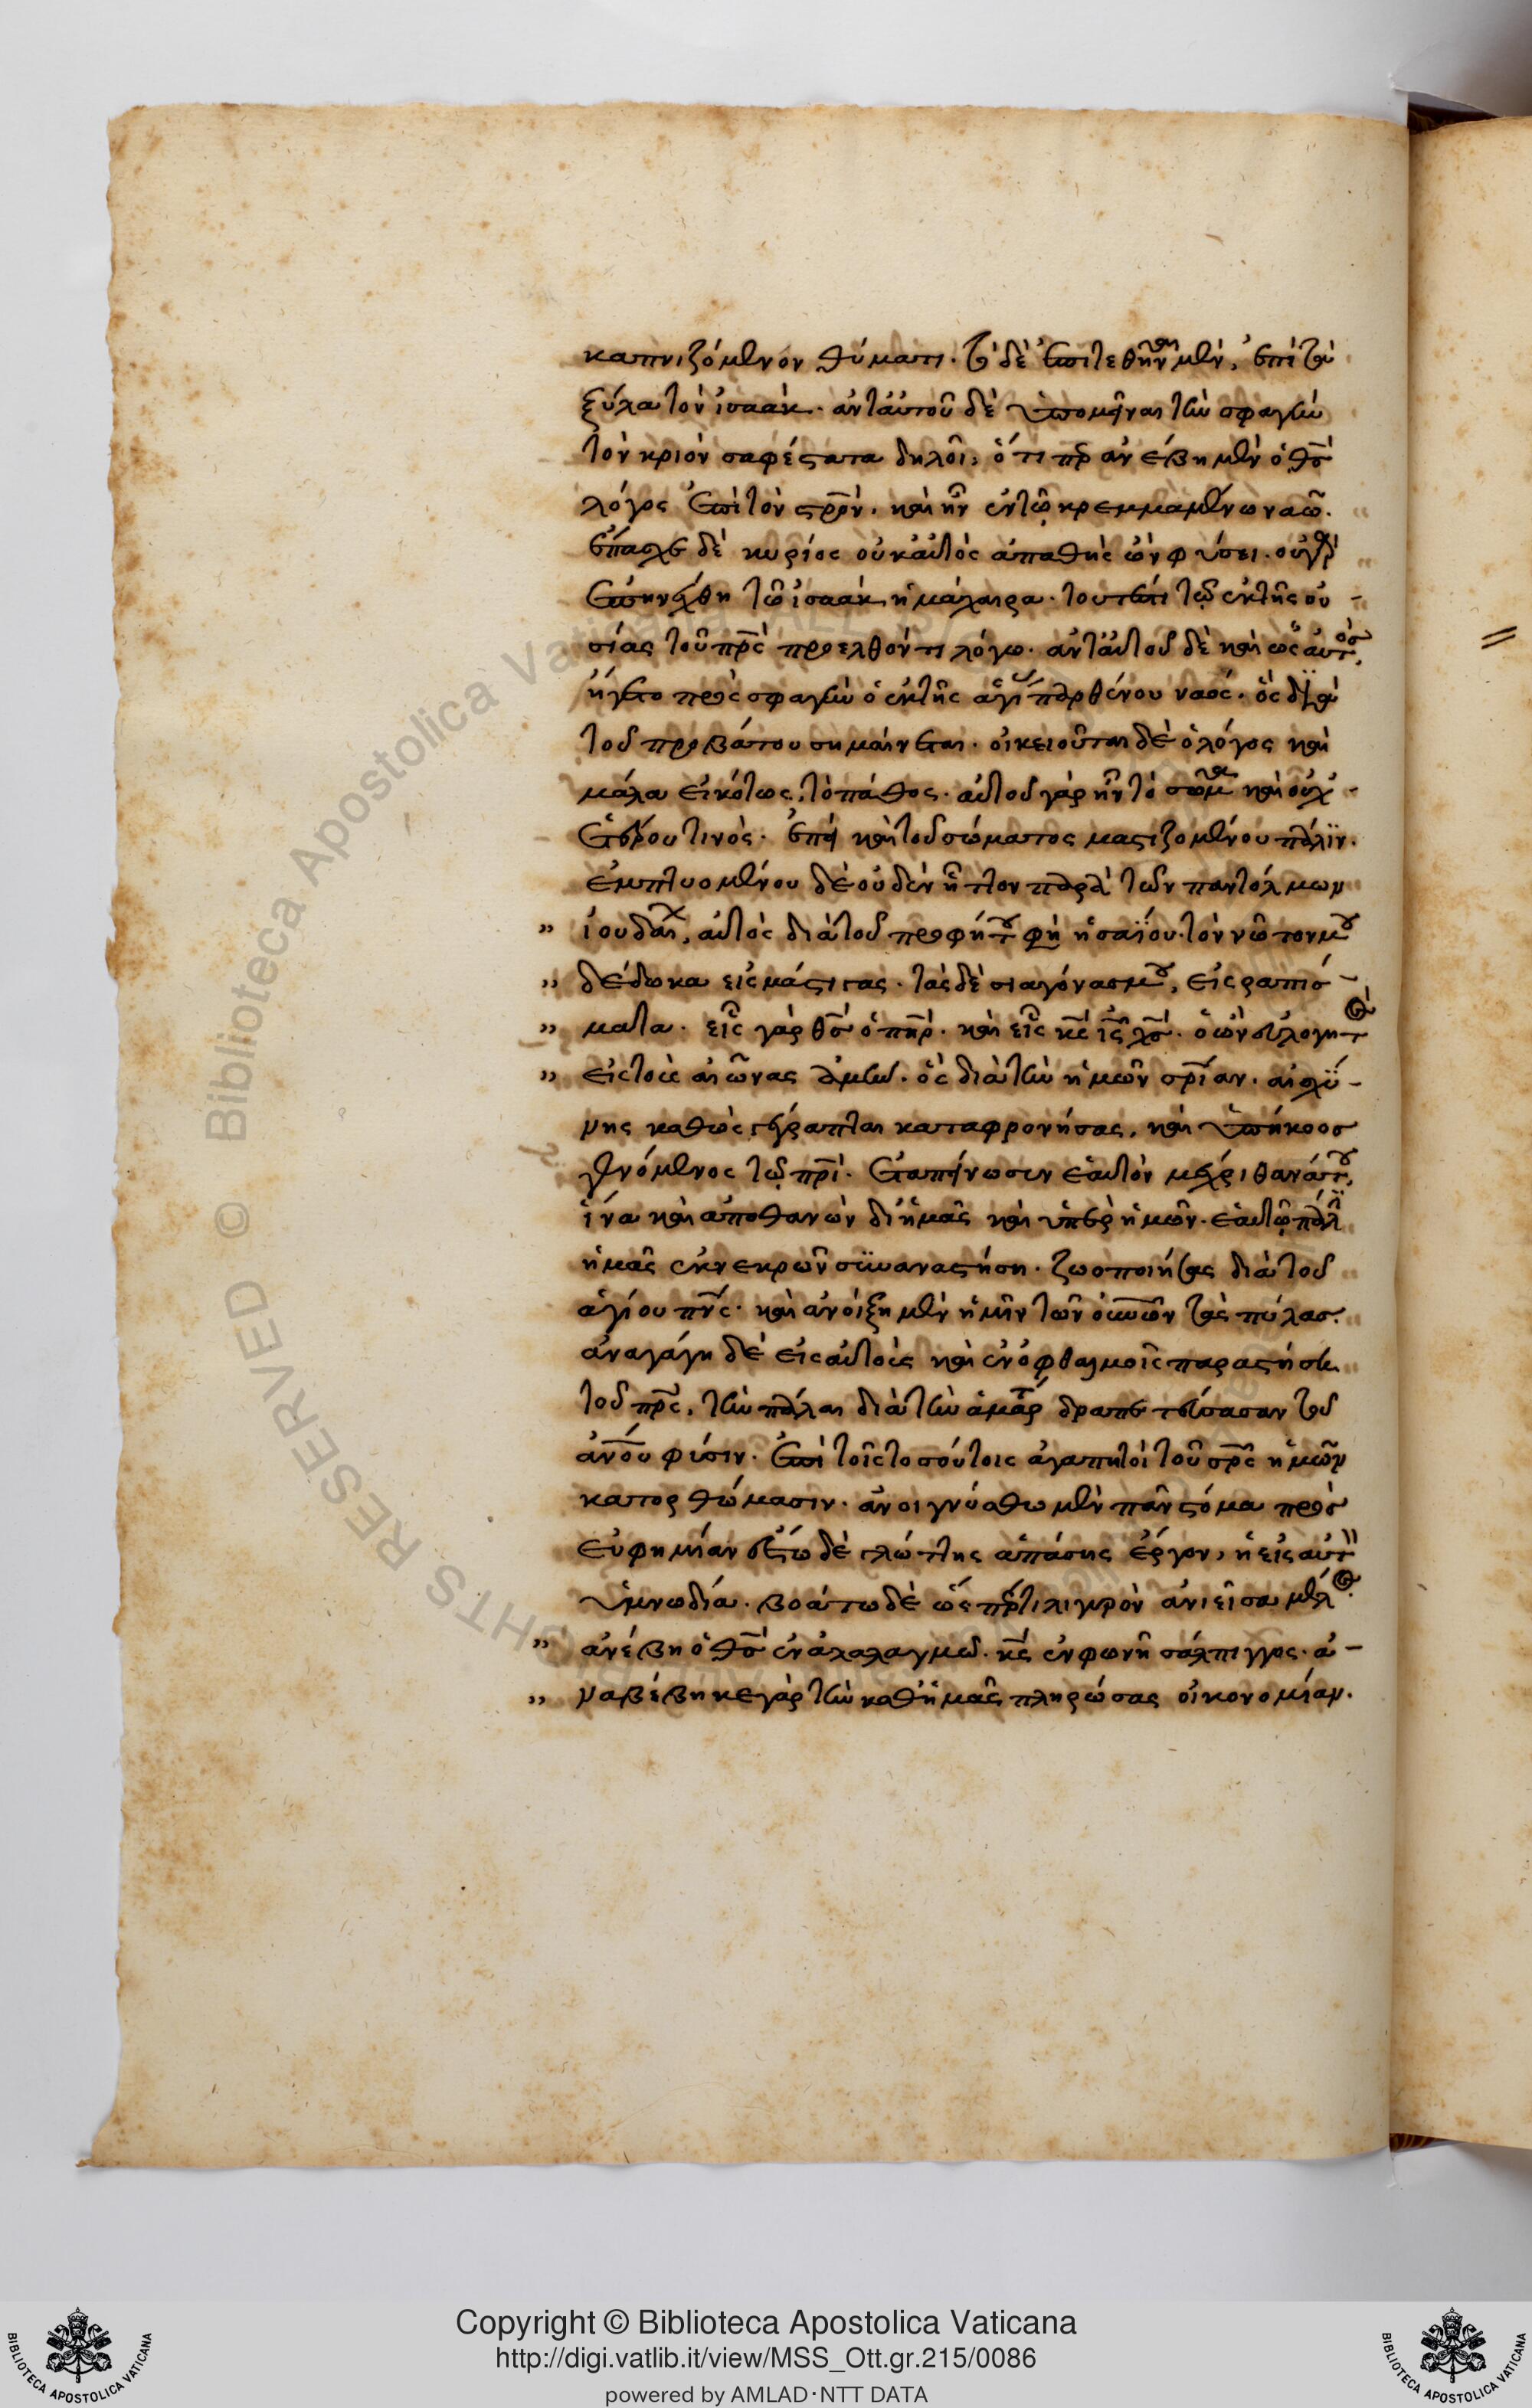 καπνιζόμενον θύματι. τὸ δὲ ἐπιτεθῆναι μὲν, ἐπὶ τὰ
ξύλα τὸν ἰσαάκ. ἀντ' αὐτοῦ δὲ ὑπομεῖναι τὴν σφαγὴν
τὸν κριὸν σαφέστατα δηλοῖ, ὅτι ἀνέβη μὲν ὁ θς
λόγος ἐπὶ τὸν στρὸν. καὶ ἦν ἐν τῷ κρεμμαμένω ναῶ.
ἔπασχε δὲ κυρίος οὐκ αὐτὸς ἀπαθὴς ὢν φύσει. οὐ γὰρ
ἐπηνέχθη τῶ ἰσαὰκ ἡ μάχαιρα. τουτέστι τῷ ἐκ τῆς οὐ-
σίας τοῦ πρς προελθόντι λόγω. ἀντ' αὐτοῦ δὲ καὶ ὡς αὐτὸς,
ἤγετο πρὸς σφαγὴν ὁ ἐκ τῆς ἁγί παρθένου ναός. ὃς διὰ
τοῦ προβάτου σημαίνεται. οἰκειοῦται δὲ ὁ λόγος καὶ
μάλα εἰκότως, τὸ πάθος. αὐτοῦ γὰρ ἦν τὸ σῶμα καὶ οὐχ
ἑτέρου τινὸς. ἐπεὶ καὶ τοῦ σώματος μαστιζομένου πάλιν.
ἐμπτυομένου δὲ οὐδὲν ἧττον παρὰ τῶν παντόλμων
" ἰουδαί, αὐτὸς διὰ τοῦ προφήτου φη ἡσαΐου. τὸν νῶτον μου
" δέδωκα εἰς μάστιγας. τὰς δὲ σιαγόνας μου, εἰς ραπίσ-
" ματα. εἷς γὰρ θς ὁ πηρ. καὶ εἷς κς ις χς. ὁ ὢν εὐλογητ
" εἰς τοὺς αἰῶνας ἀμήν. ὃς διὰ τὴν ἡμῶν σρίαν. αἰσχύ-
νης καθὼς γέγραπται καταφρονήσας, καὶ ὑπήκοος
γενόμενος τῷ πρὶ. ἐταπείνωσεν ἑαυτὸν μέχρι θανάτου,
ἵνα καὶ ἀποθανὼν δι' ἡμᾶς καὶ ὑπὲρ ἡμῶν. ἑαυτῷ πάλ
ἡμᾶς ἐκ νεκρῶν συναναστήση. ζωοποιήσας διὰ τοῦ
ἁγίου πνς. καὶ ἀνοίξη μὲν ἡμῖν τῶν οὐνῶν τὰς πύλας.
ἀναγάγη δὲ εἰς αὐτοὺς καὶ ἐν ὀφθαλμοῖς παραστήση
τοῦ πρς, τὴν πάλαι διὰ τὴν ἁμαρτ δραπετεύσασαν τοῦ
ἀνου φύσιν. ἐπὶ τοῖς τοσούτοις ἀγαπητοὶ τοῦ σρς ἡμῶν
κατορθώμασιν. ἀνοιγνύσθω μὲν πᾶν στόμα πρὸς
εὐφημίαν ἔστω δὲ γλώττης ἁπάσης ἔργον, ἡ εἰς αὐτ
ὑμνωδία. βοάτω δὲ ὥς τι λιγυρὸν ἀνιεῖσα μέλος
" ἀνέβη ὁ θς ἐν ἀλαλαγμῶ. κς ἐν φωνῆ σάλπιγγος. ἀ-
" ναβέβηκε γὰρ τὴν καθ' ἡμᾶς πληρώσας οἰκονομίαν.
Copyright © Biblioteca Apostolica Vaticana
http://digi.vatlib.it/view/MSS_Ott.gr.215/0086
powered by AMLAD·NTT DATA
BIBLIOTECA APOSTOLICA VATICANA
BIBLIOTECA APOSTOLICA VATICANA